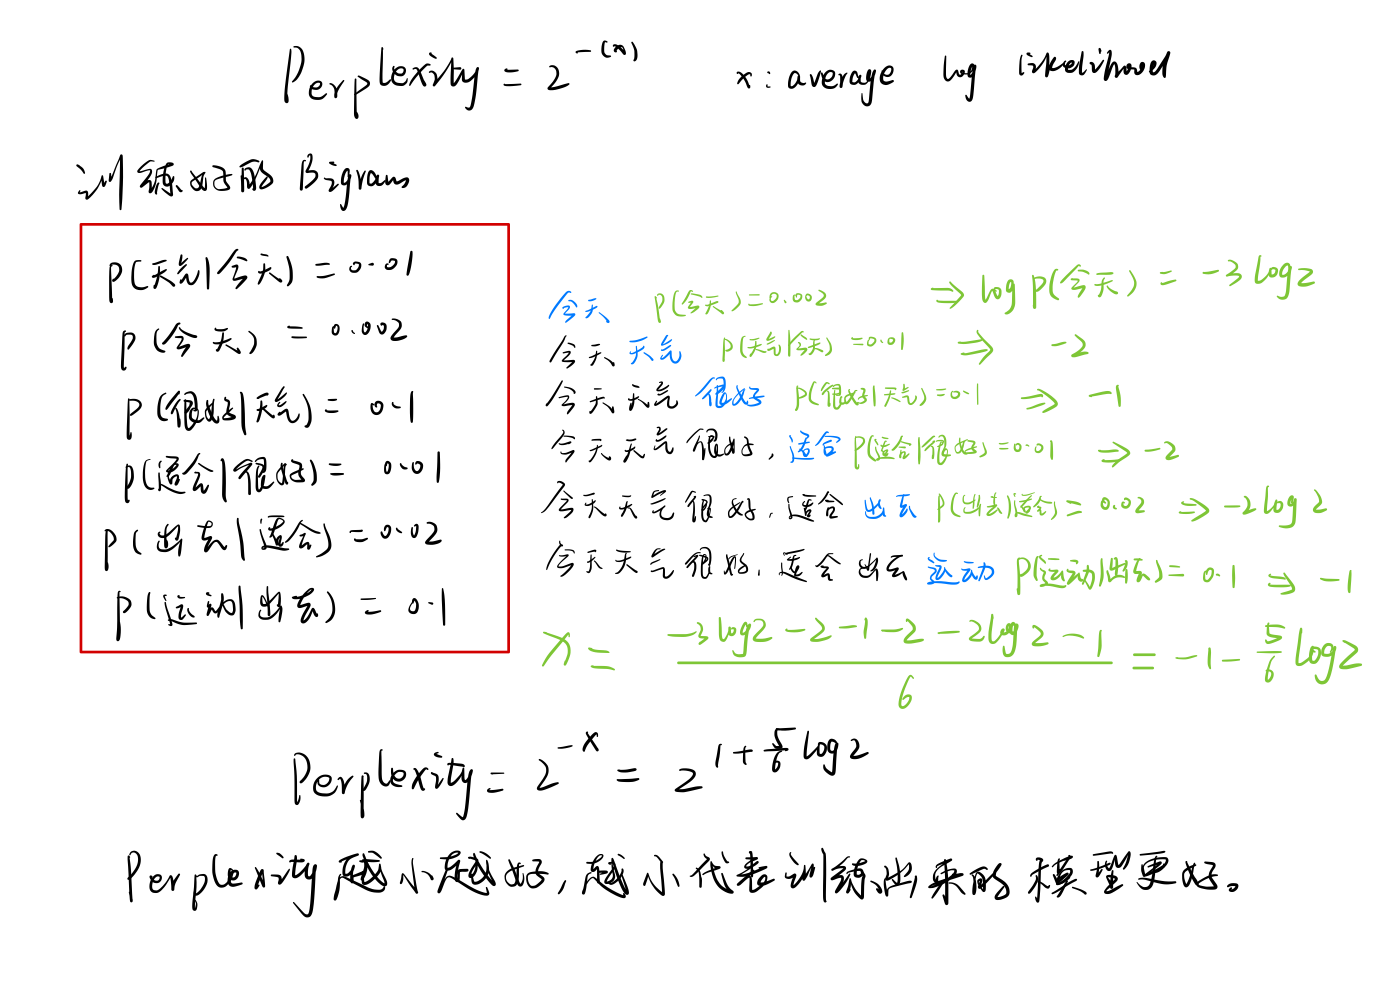 Perplexity = 2^-(x) x : average log likelihood
训练好的 Bigram
p(天气|今天) = 0.01
p(今天) = 0.002
p(很好|天气) = 0.1
p(适合|很好) = 0.01
p(出去|适合) = 0.02
p(运动|出去) = 0.1
今天 p(今天)=0.002 ⇒ log p(今天) = -3log2
今天天气 p(天气|今天)=0.01 ⇒ -2
今天天气很好 p(很好|天气)=0.1 ⇒ -1
今天天气很好,适合 p(适合|很好)=0.01 ⇒ -2
今天天气很好,适合出去 p(出去|适合)= 0.02 ⇒ -2log2
今天天气很好,适合出去运动 p(运动|出去)= 0.1 ⇒ -1
x = (-3log2 -2 -1 -2 -2log2 -1)/6 = -1 - 5/6 log2
Perplexity = 2^-x = 2^(1+5/6 log2)
Perplexity 越小越好,越小代表训练出来的模型更好。